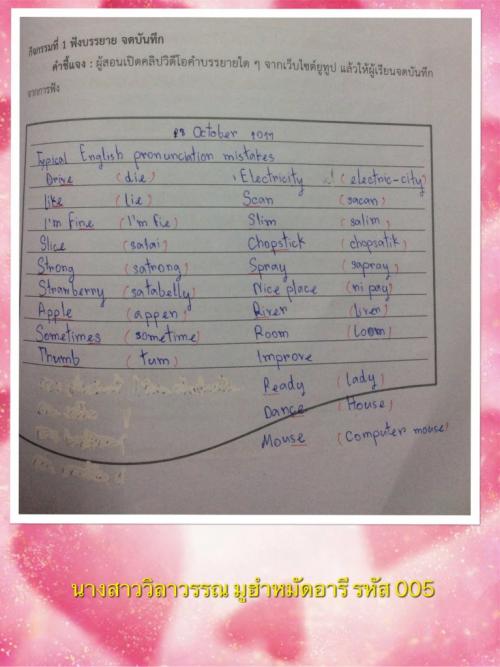 กิจกรรมที่ 1 ฟังบรรยาย จดบันทึก
คำชี้แจง : ผู้สอนเปิดคลิปวิดีโอคำบรรยายใด ๆ จากเว็บไซต์ยูทูป แล้วให้ผู้เรียนจดบันทึก
จากการฟัง
October
Typical English pronunciation mistakes
Drive (die) Electricity (electric-city)
Like (lie) Scan (sacan)
I'm Fine (I'm Fie) Slim (salim)
Slice (salai) Chopstick (chopsatik)
Strong (satrong) Spray (sapray)
Strawberry (satabelly) Nice place (ni pay)
Apple (appen) River (liver)
Sometimes (sometime) Room (loom)
Thumb (tum) Improve
Ready (lady)
Dance (House)
Mouse (Computer mouse)
นางสาววิลาวรรณ มูฮำหมัดอารี รหัส 005